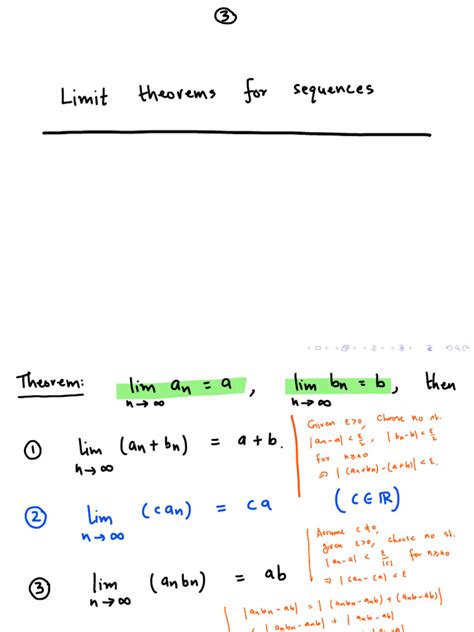 ③
Limit theorems for sequences
Theorem: lim n→∞ an = a , lim n→∞ bn = b , then
① lim n→∞ (an + bn) = a + b.
Given ε>0, choose n0 st.
|an-a| < ε/2 , |bn-b| < ε/2
for n≥n0
⇒ |(an+bn)-(a+b)| < ε.
② lim n→∞ (can) = ca (c ∈ ℝ)
Assume c ≠0,
given ε>0, choose n0 st.
|an-a| < ε/|c| for n≥n0
⇒ |can-ca| < ε
③ lim n→∞ (anbn) = ab
|anbn-ab| = |(anbn-anb) + (anb-ab)|
≤ |anbn-anb| + |anb-ab|